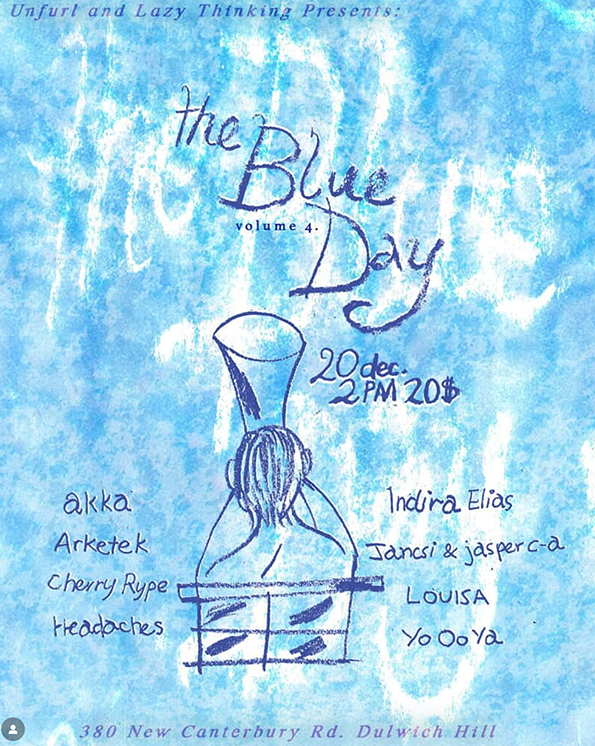 Unfurl and Lazy Thinking Presents:
the Blue
volume 4.
Day
20 dec.
2PM 20$
akka
Arketek
Cherry Rype
Headaches
Indira Elias
Jancsi & jasper c-a
LOUISA
Yo Oo Ya
380 New Canterbury Rd. Dulwich Hill